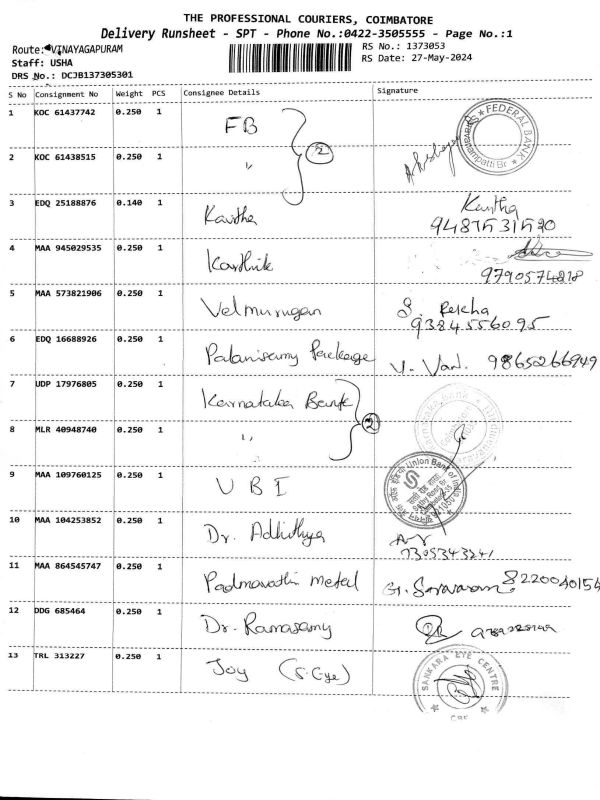 THE PROFESSIONAL COURIERS, COIMBATORE
Delivery Runsheet - SPT - Phone No.:0422-3505555 - Page No.:1
Route: VINAYAGAPURAM
RS No.: 1373053
Staff: USHA
RS Date: 27-May-2024
DRS No.: DCJB137305301
S No Consignment No Weight PCS Consignee Details Signature
1 KOC 61437742 0.250 1 FB
FEDERAL BANK
2
2 KOC 61438515 0.250 1 "
3 EDQ 25188876 0.140 1 Kavitha Kavitha
9487531520
4 MAA 945029535 0.250 1 Karthik
9790574218
5 MAA 573821906 0.250 1 Velmurugan S. Rekha
9384556095
6 EDQ 16688926 0.250 1 Palanisamy Package V. Van. 9865266949
7 UDP 17976805 0.250 1 Karnataka Bank
2
8 MLR 40948740 0.250 1 "
Union Bank of India
9 MAA 109760125 0.250 1 UBI
10 MAA 104253852 0.250 1 Dr. Adhithya
7305343241
11 MAA 864545747 0.250 1 Padmavathi metal G. Saravanan 8220040154
12 DDG 685464 0.250 1 Dr. Ramasamy
13 TRL 313227 0.250 1 Joy (S. Eye)
SANKARA EYE CENTRE